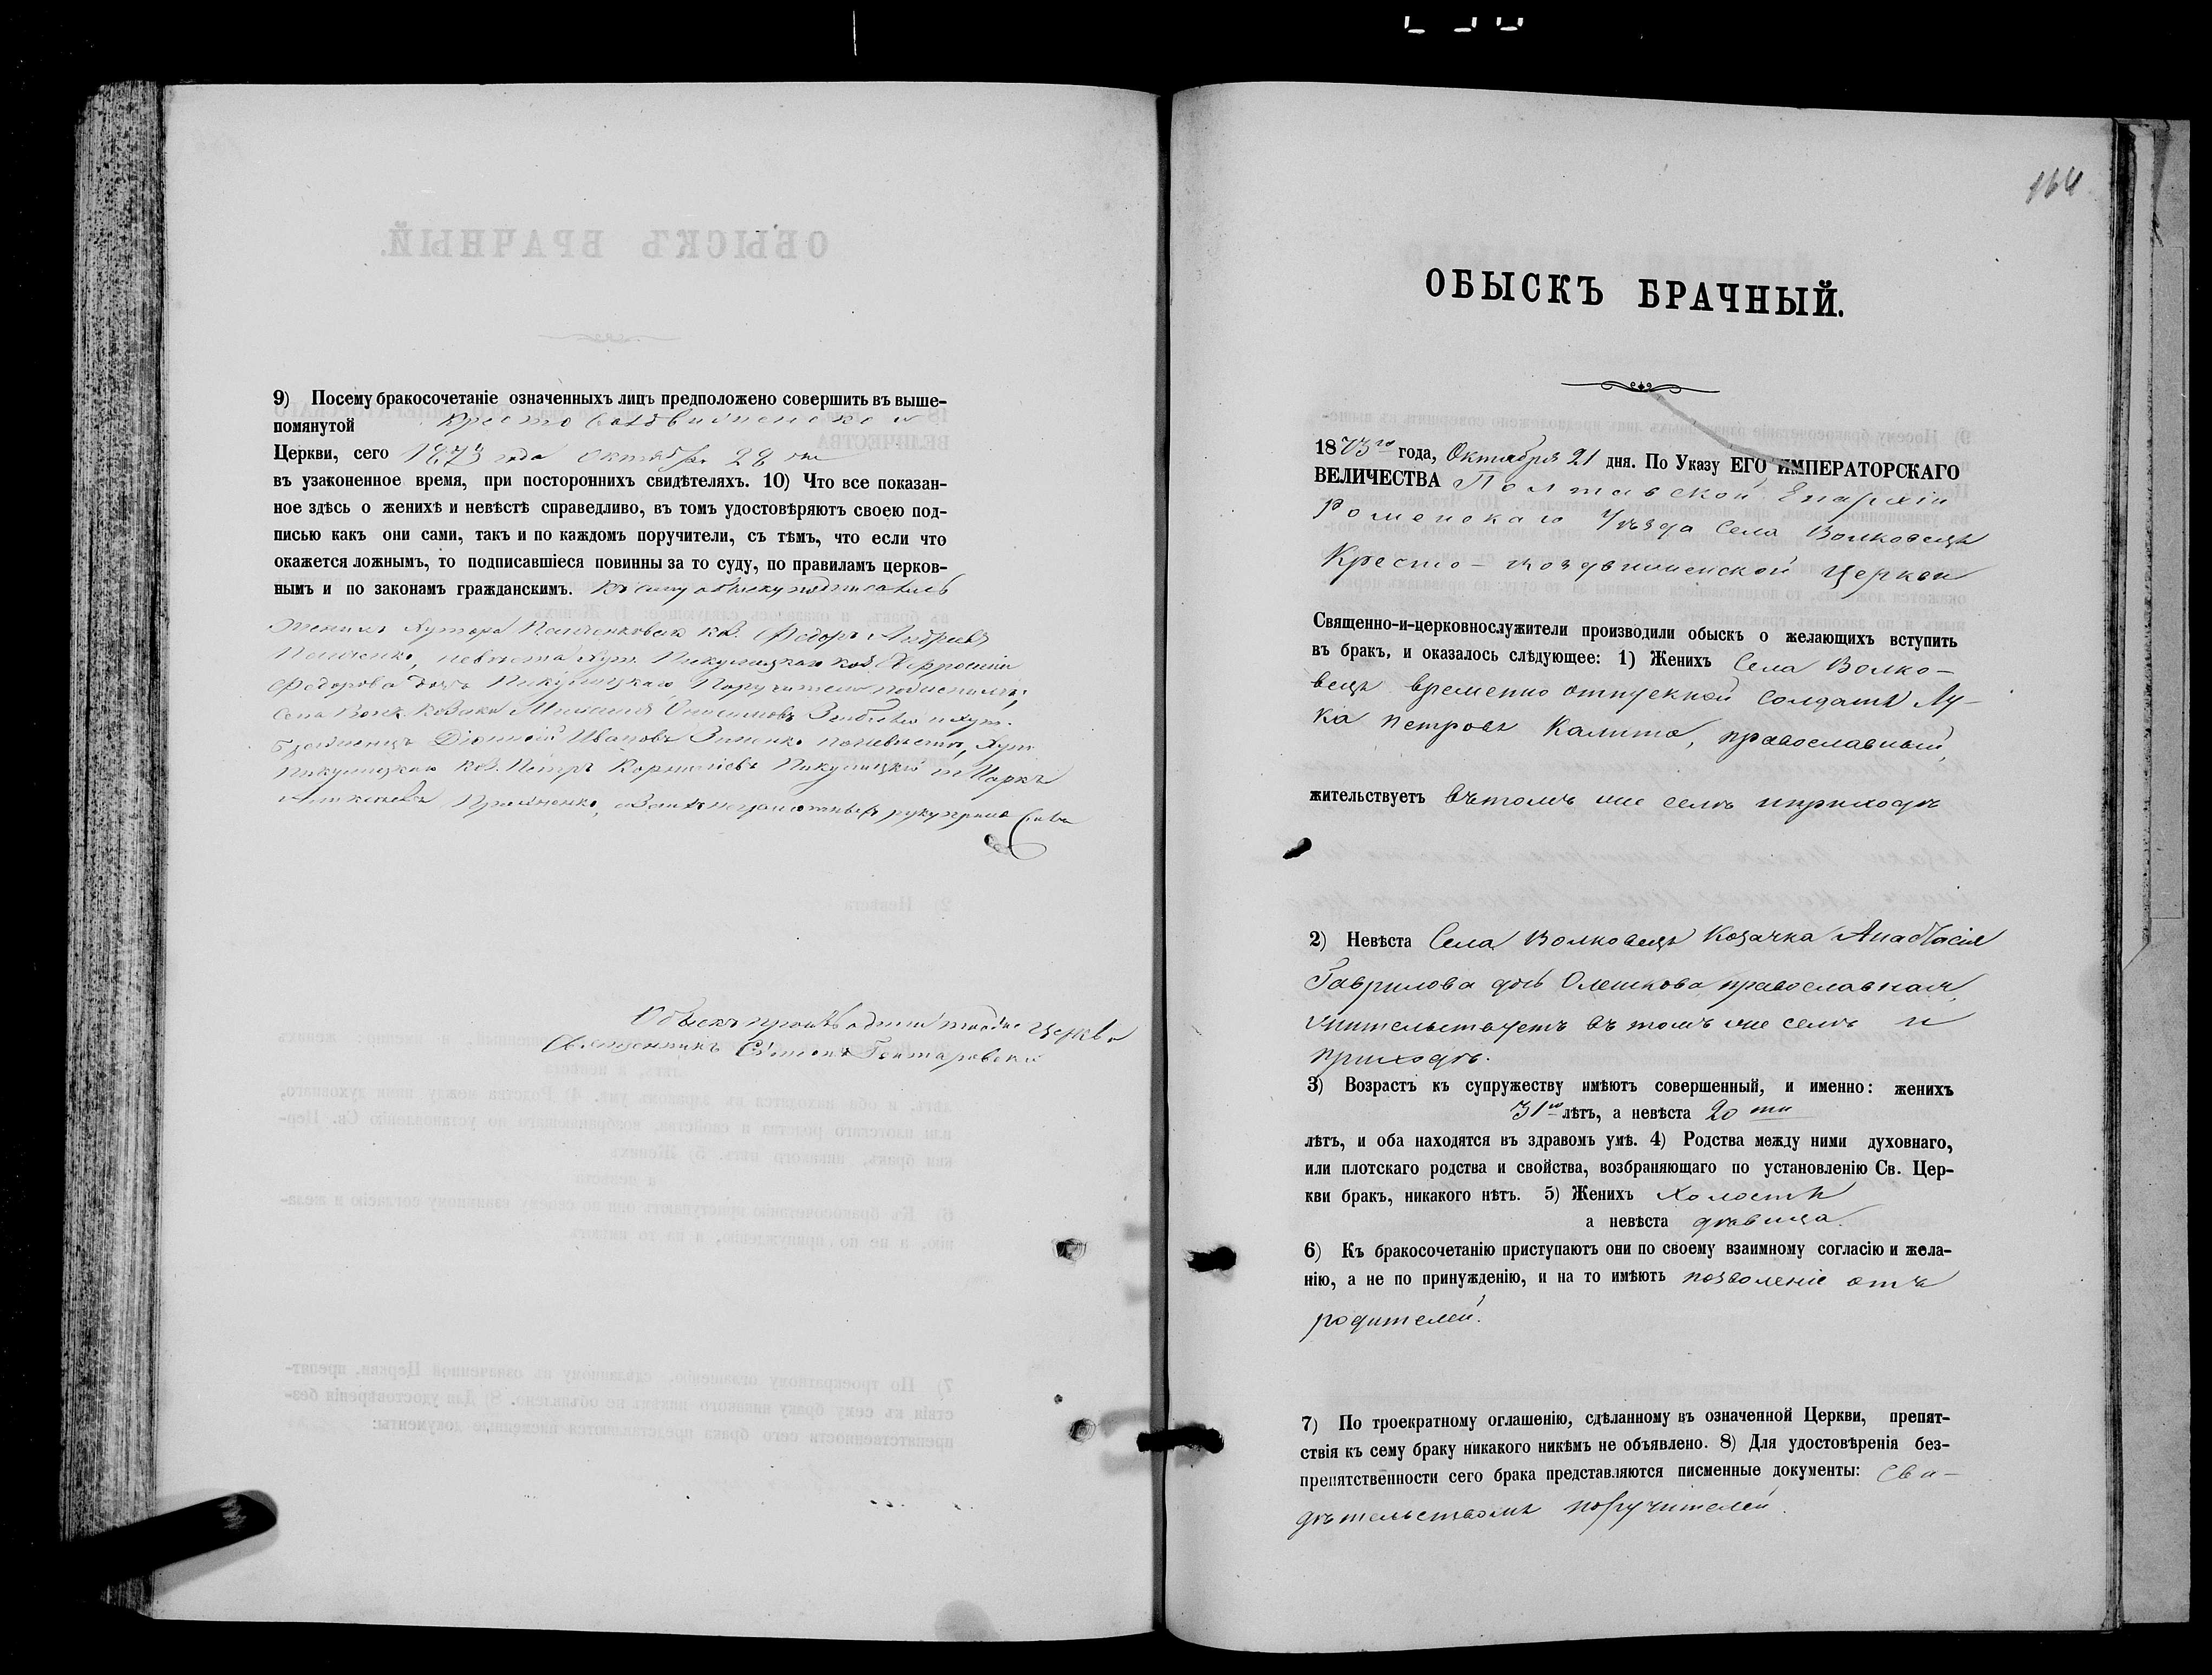 9) Посему бракосочетаніе означенныхъ лицъ предположено совершить въ выше-
помянутой Кресто Воздвиженской
Церкви, сего 1873 года Октября 28 дня
въ узаконенное время, при постороннихъ свидѣтеляхъ. 10) Что все показан-
ное здѣсь о женихѣ и невѣстѣ справедливо, въ томъ удостовѣряютъ своею под-
писью какъ они сами, такъ и по каждомъ поручители, съ тѣмъ, что если что
окажется ложнымъ, то подписавшіеся повинны за то суду, по правиламъ церков-
нымъ и по законамъ гражданскимъ. Къ сему обыску подписались
женихъ хутора коз. Федоръ Андреевъ
невѣста хут. Пикулицкаго коз.
Федорова дочь Пикулицкаго, Поручители по женихѣ,
Села Волк. козаки Михаилъ и хут.
Ивановъ Зименко по невѣстѣ, хут.
Пикулицкаго коз. Петръ Корниліевъ Пикулицкій и Марко
неграмотныхъ руку
Обыскъ производили тоей Церкви
Священникъ Симеонъ Гонтаровскій
164
ОБЫСКЪ БРАЧНЫЙ.
1873го года, Октября 21 дня. По Указу ЕГО ИМПЕРАТОРСКАГО
ВЕЛИЧЕСТВА Полтавской Епархіи
Роменскаго Уѣзда Села Волковецъ
Кресто-Воздвиженской Церкви
Священно-и-церковнослужители производили обыскъ о желающихъ вступить
въ бракъ, и оказалось слѣдующее: 1) Женихъ Села Волко-
вецъ временно отпускной солдатъ Лу-
ка Петровъ Калита, православный,
жительствуетъ въ томъ же селѣ и приходѣ
2) Невѣста Села Волковецъ Козачка Анастасія
Гаврилова дочь Олешкова православная,
жительствуетъ въ томъ же селѣ и
приходѣ.
3) Возрастъ къ супружеству имѣютъ совершенный, и именно: женихъ
31го лѣтъ, а невѣста 20 ти
лѣтъ, и оба находятся въ здравомъ умѣ. 4) Родства между ними духовнаго,
или плотскаго родства и свойства, возбраняющаго по установленію Св. Цер-
кви бракъ, никакого нѣтъ. 5) Женихъ холостъ
а невѣста дѣвица.
6) Къ бракосочетанію приступаютъ они по своему взаимному согласію и жела-
нію, а не по принужденію, и на то имѣютъ позволеніе отъ
родителей.
7) По троекратному оглашенію, сдѣланному въ означенной Церкви, препят-
ствія къ сему браку никакого никѣмъ не объявлено. 8) Для удостовѣренія без-
препятственности сего брака представляются писменные документы: сви-
дѣтельствомъ поручителей.